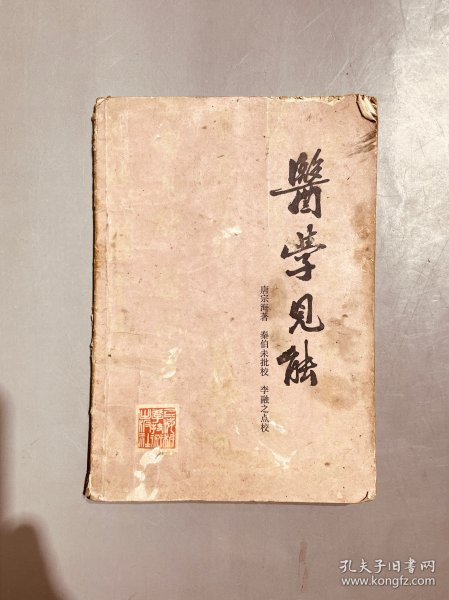 醫学見能
唐宗海著 秦伯未批校 李融之点校
孔夫子旧书网
www.kongfz.com